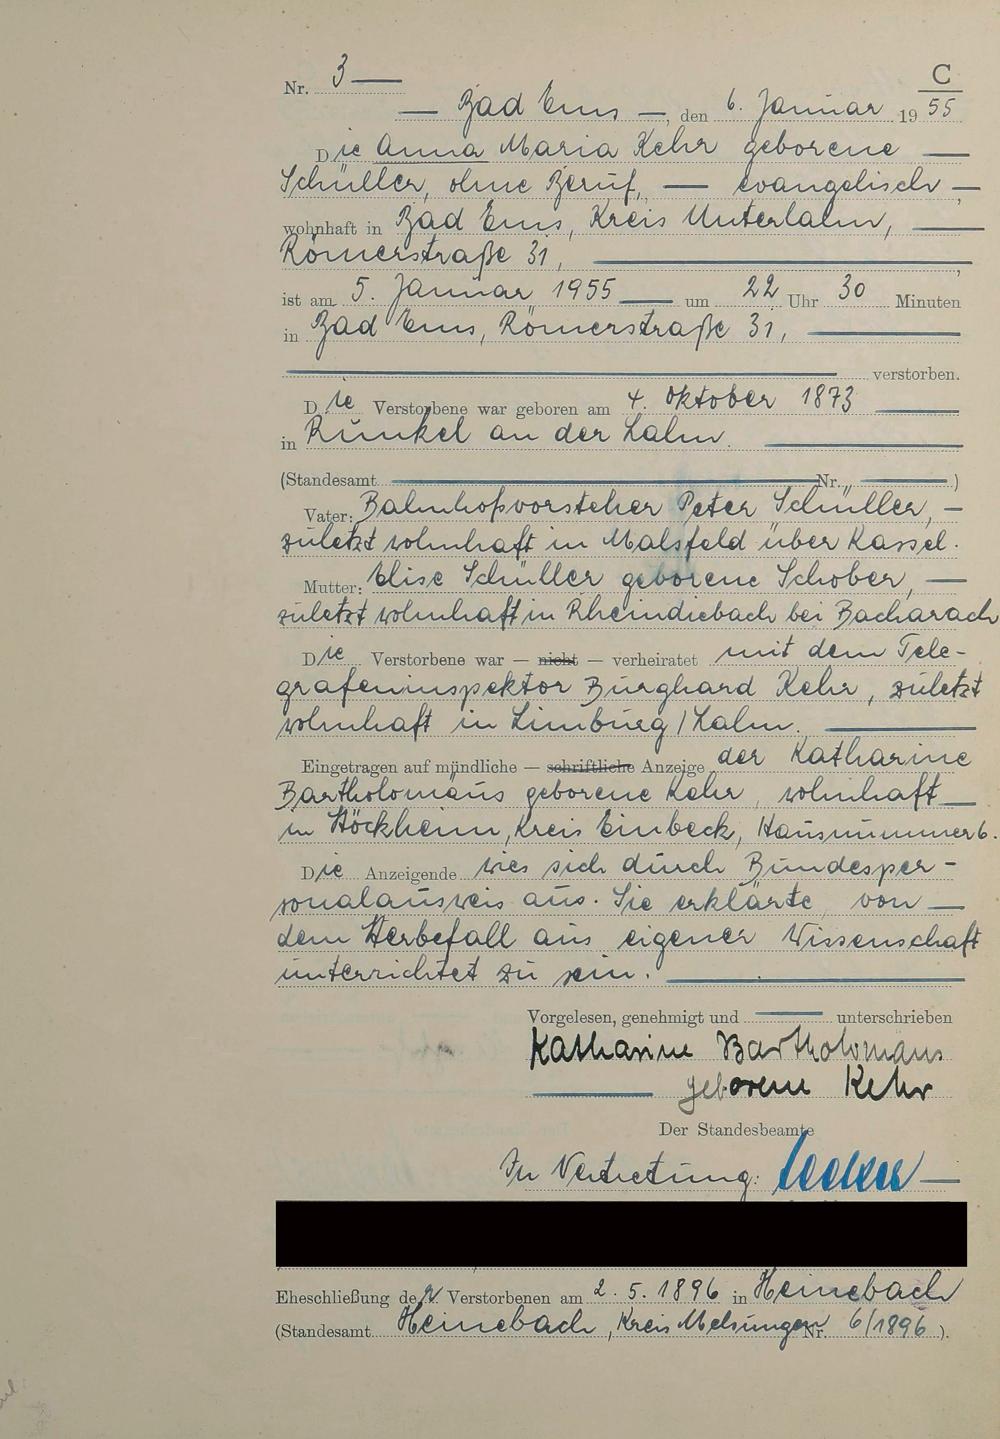 C
Nr. 3 —
— Bad Ems —, den 6. Januar 1955
Die Anna Maria Kehr geborene —
Schüller, ohne Beruf, — evangelisch —
wohnhaft in Bad Ems, Kreis Unterlahn, —
Römerstraße 31, —,
ist am 5. Januar 1955 — um 22 Uhr 30 Minuten
in Bad Ems, Römerstraße 31, —
— verstorben.
Die Verstorbene war geboren am 4. Oktober 1873 —
in Runkel an der Lahn. —
(Standesamt — Nr. — )
Vater: Bahnhofsvorsteher Peter Schüller, —
zuletzt wohnhaft in Malsfeld über Kassel.
Mutter: Elise Schüller geborene Schober, —
zuletzt wohnhaft in Rheindiebach bei Bacharach
Die Verstorbene war — nicht — verheiratet mit dem Tele-
grafeninspektor Burghard Kehr, zuletzt
wohnhaft in Limburg/Lahn. —
Eingetragen auf mündliche — schriftliche Anzeige der Katharine
Bartholomäus geborene Kehr, wohnhaft —
in Höckheim, Kreis Einbeck, Hausnummer 6.
Die Anzeigende wies sich durch Bundesper-
sonalausweis aus. Sie erklärte, von —
dem Sterbefall aus eigener Wissenschaft
unterrichtet zu sein. —
Vorgelesen, genehmigt und — unterschrieben
Katharine Bartholomäus
— geborene Kehr
Der Standesbeamte
In Vertretung: —
Eheschließung der Verstorbenen am 2.5.1896 in Heinebach
(Standesamt Heinebach, Kreis Melsungen Nr. 6/1896 ).